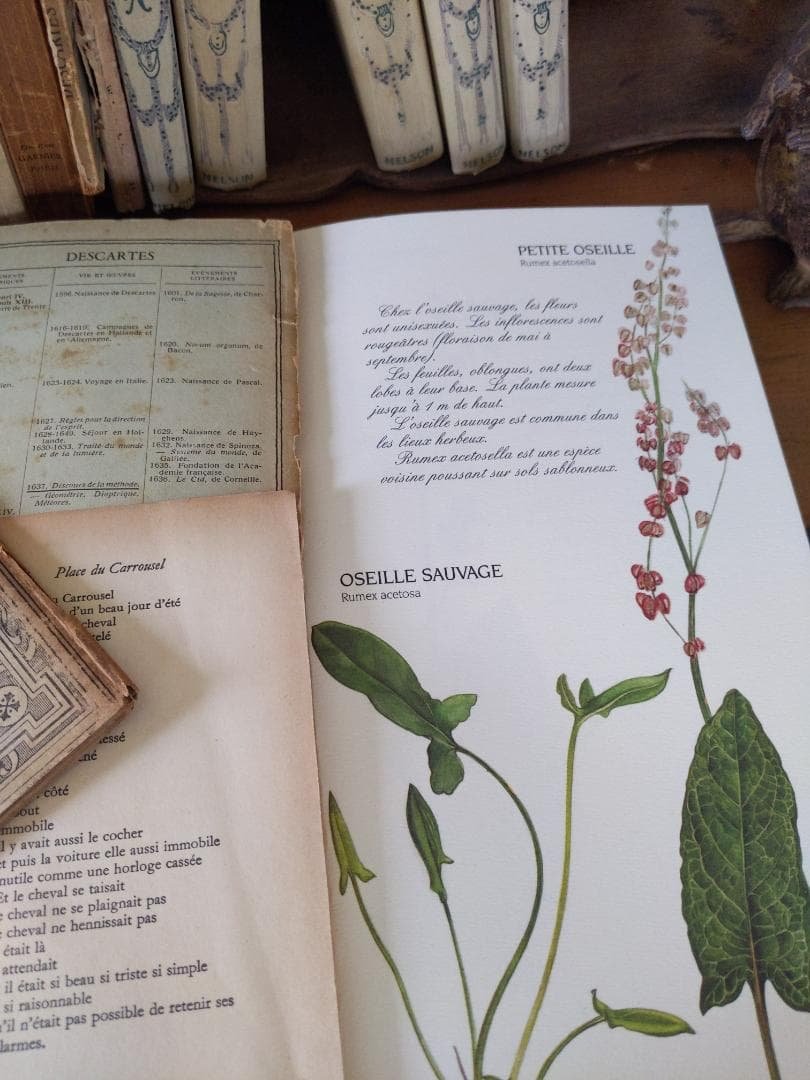 GARNIER
NELSON
NELSON
NELSON
DESCARTES
VIE ET ŒUVRES
ÉVÉNEMENTS
LITTÉRAIRES
1596. Naissance de Descartes
1616-1619. Campagnes de
Descartes en Hollande et
en Allemagne.
1623-1624. Voyage en Italie.
1627. Règles pour la direction
de l'esprit.
1628-1649. Séjour en Hol-
lande.
1630-1633. Traité du monde
et de la lumière.
1637. Discours de la méthode.
— Géométrie, Dioptrique,
Météores.
1601. De la Sagesse, de Char-
ron.
1620. Novum organum, de
Bacon.
1623. Naissance de Pascal.
1629. Naissance de Huy-
ghens.
1632. Naissance de Spinoza.
— Système du monde, de
Galilée.
1635. Fondation de l'Aca-
démie française.
1636. Le Cid, de Corneille.
PETITE OSEILLE
Rumex acetosella
Chez l'oseille sauvage, les fleurs
sont unisexuées. Les inflorescences sont
rougeâtres (floraison de mai à
septembre).
Les feuilles, oblongues, ont deux
lobes à leur base. La plante mesure
jusqu'à 1 m de haut.
L'oseille sauvage est commune dans
les lieux herbeux.
Rumex acetosella est une espèce
voisine poussant sur sols sablonneux.
OSEILLE SAUVAGE
Rumex acetosa
Place du Carrousel
Carrousel
d'un beau jour d'été
cheval
côté
immobile
y avait aussi le cocher
puis la voiture elle aussi immobile
inutile comme une horloge cassée
Et le cheval se taisait
cheval ne se plaignait pas
cheval ne hennissait pas
était là
attendait
il était si beau si triste si simple
si raisonnable
qu'il n'était pas possible de retenir ses
larmes.